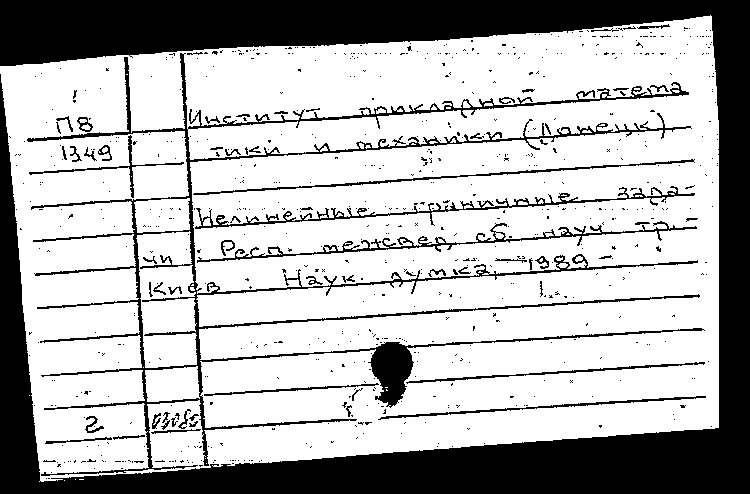 П8 Институт прикладной матема
1349 тики и механики (Донецк).
Нелинейные граничные зада-
чи : Респ. межвед. сб. науч тр. -
Киев : Наук. думка, 1989 -
2